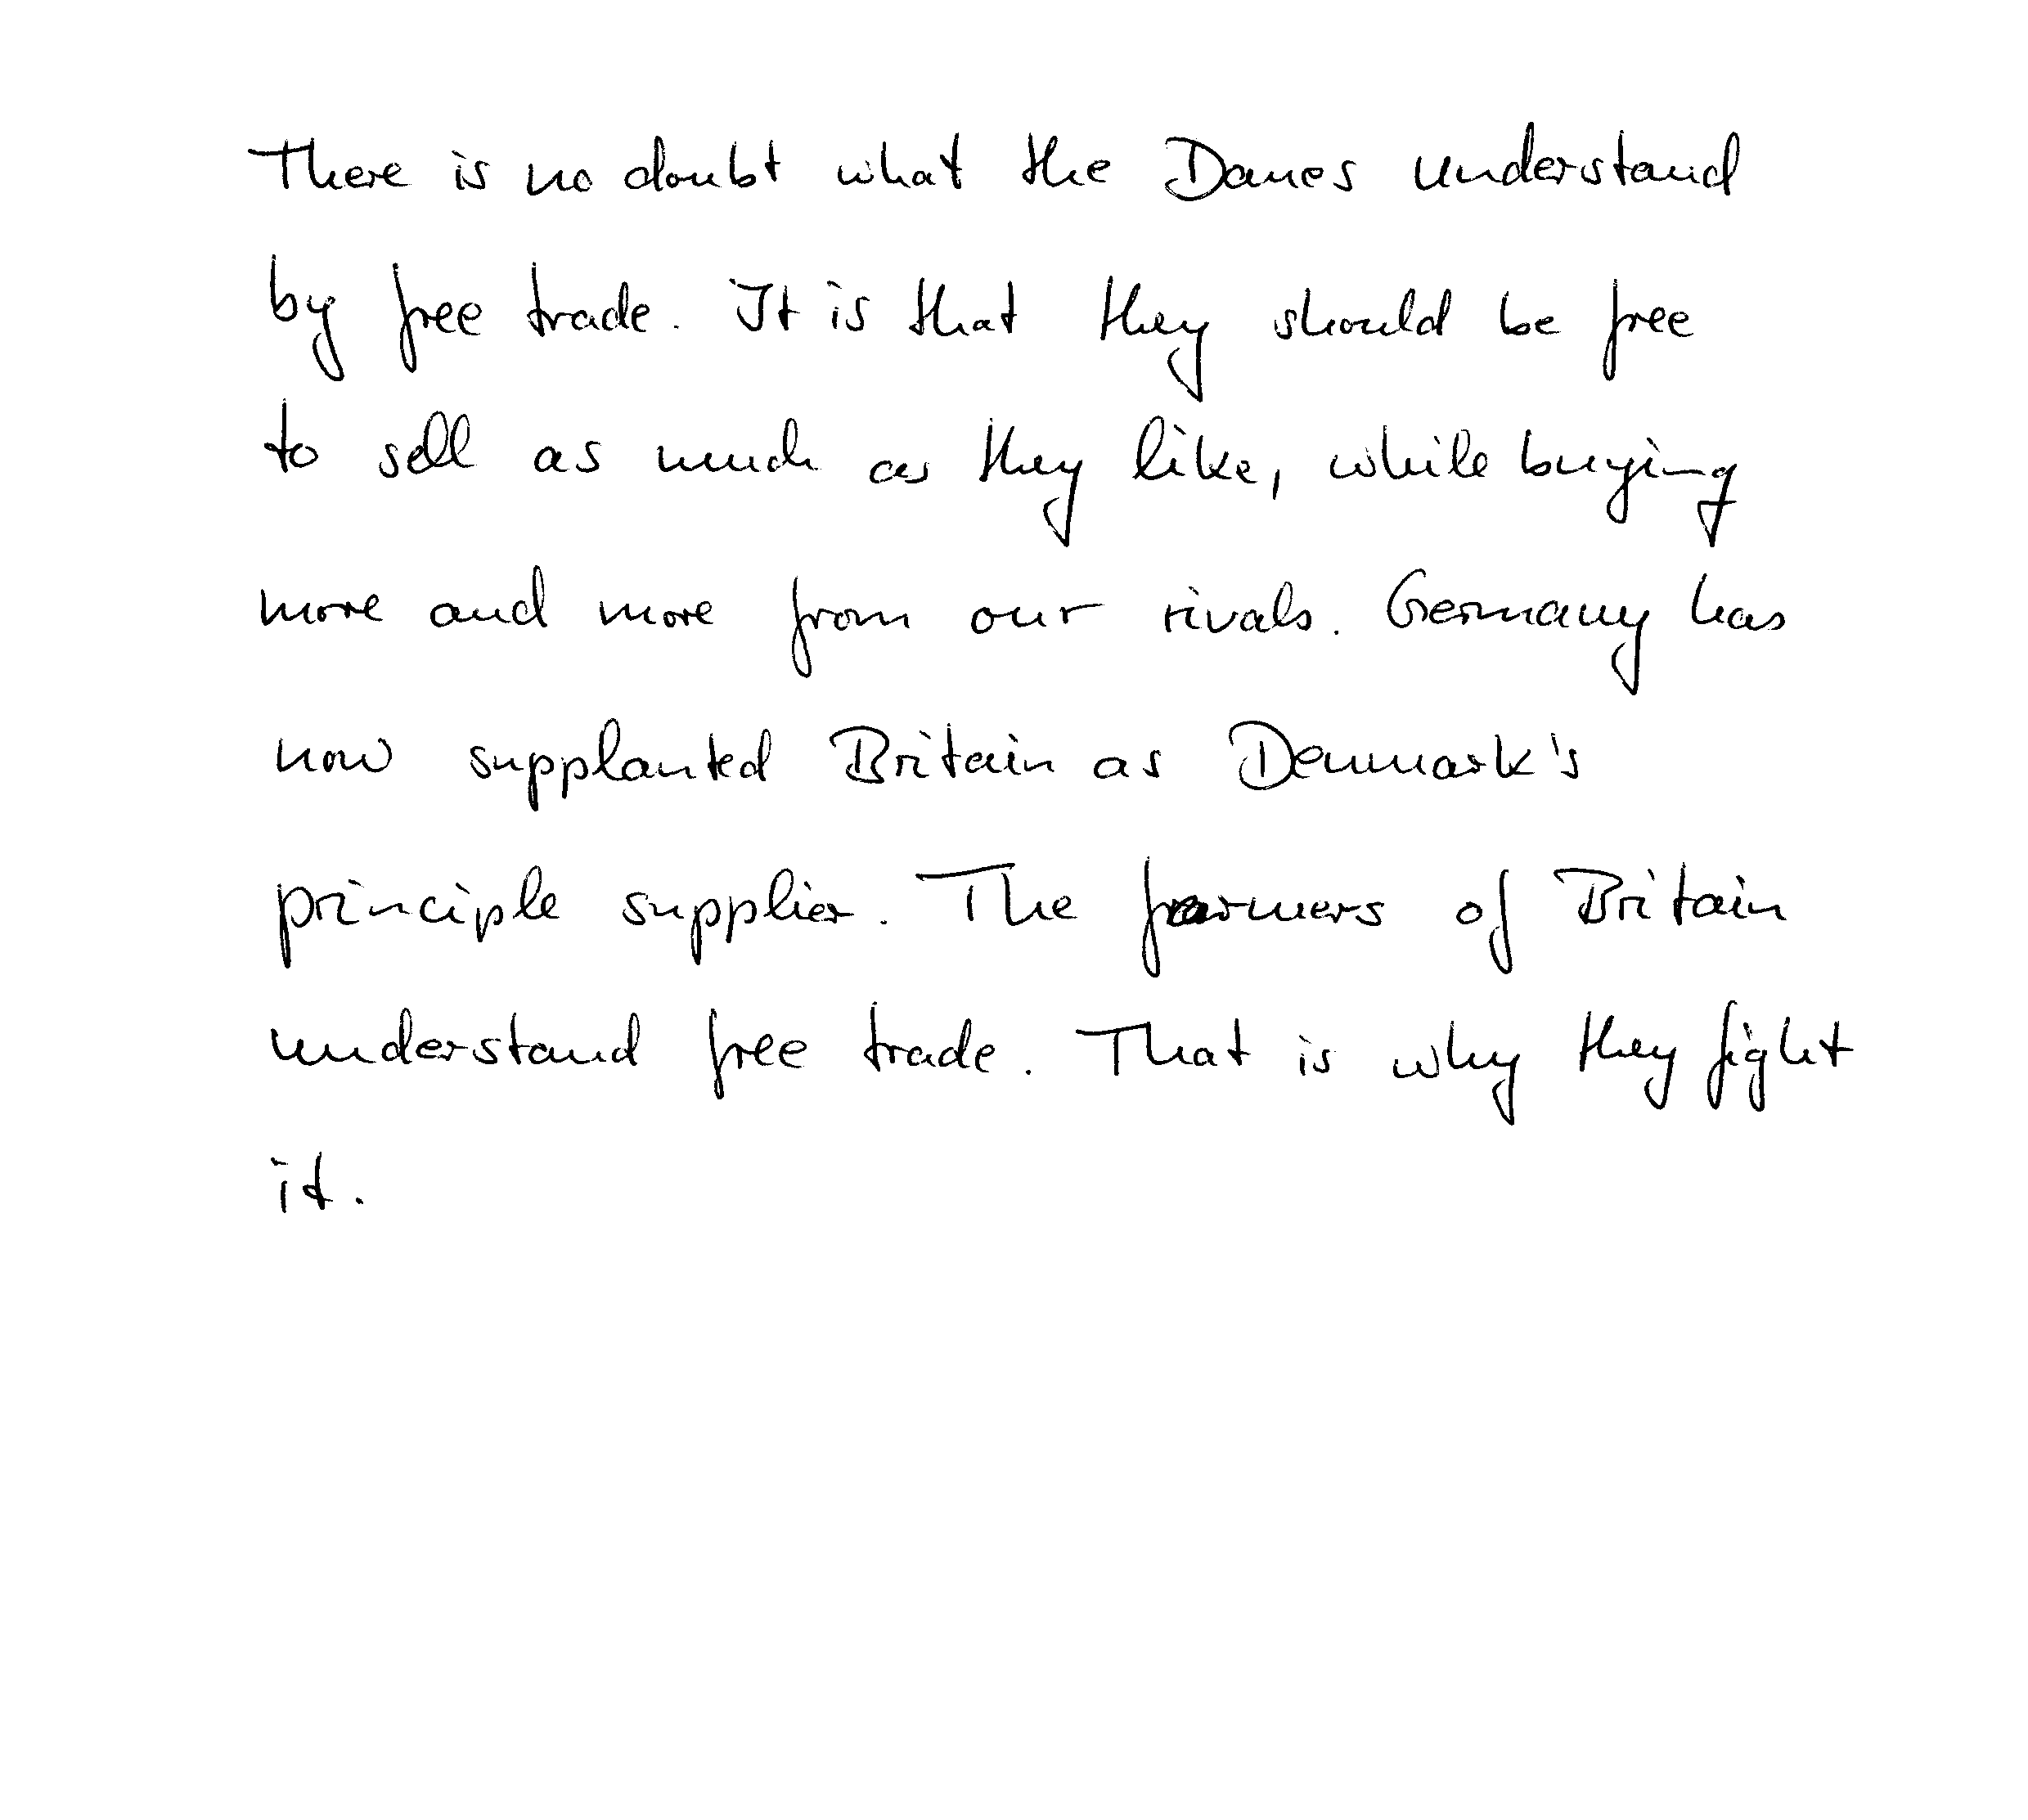 There is no doubt what the Danes understand
by free trade. It is that they should be free
to sell as much as they like, while buying
more and more from our rivals. Germany has
now supplanted Britain as Denmark's
principle supplier. The farmers of Britain
understand free trade. That is why they fight
it.